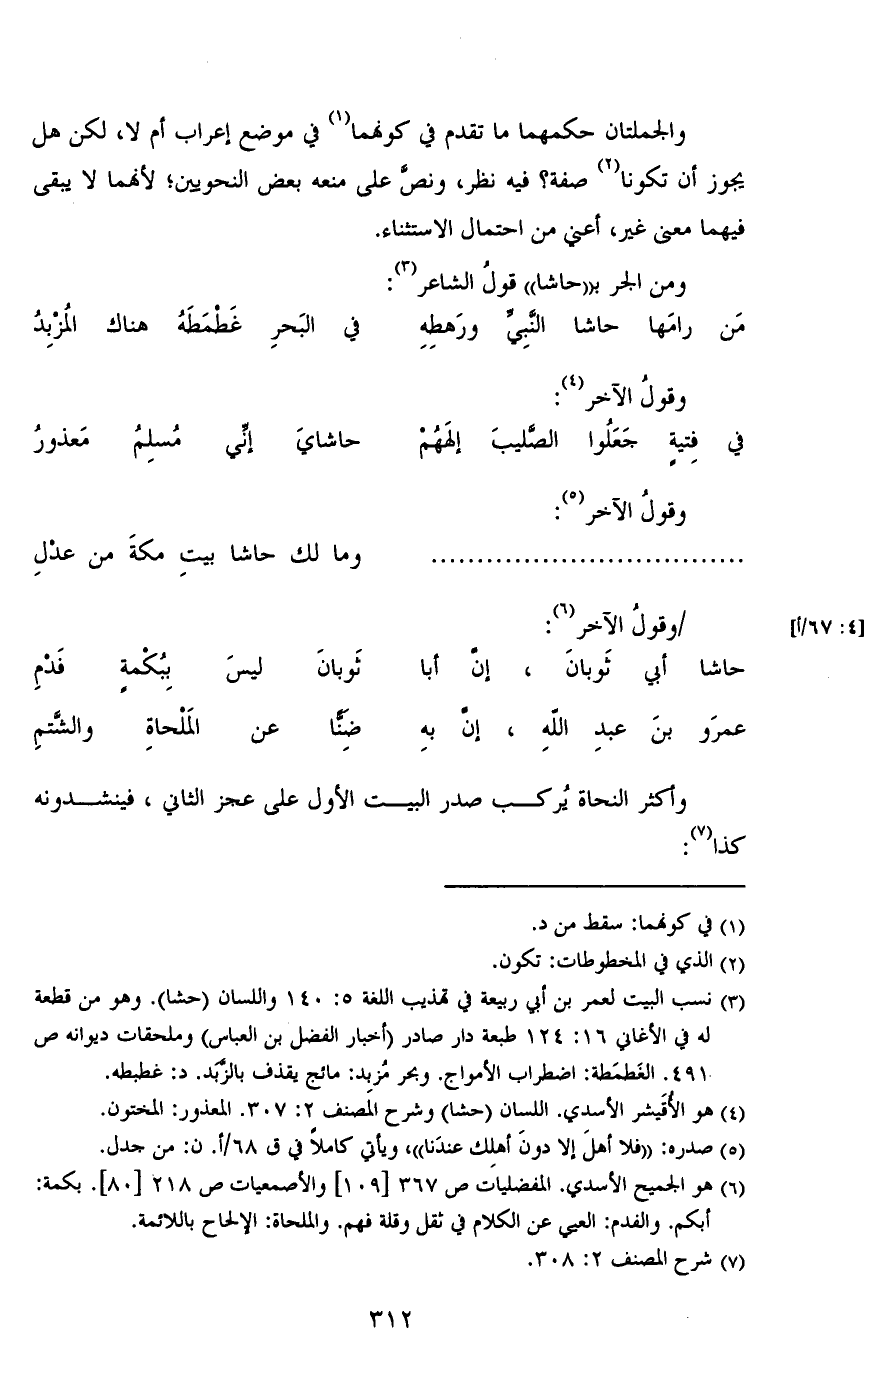 والجملتان حكمهما ما تقدم في كونهما(١) في موضع إعراب أم لا، لكن هل
يجوز أن تكونا(٢) صفة؟ فيه نظر، ونصَّ على منعه بعض النحويين؛ لأنهما لا يبقى
فيهما معنى غير، أعني من احتمال الاستثناء.
ومن الجر بـ((حاشا)) قولُ الشاعر(٣):
مَن رامَها حاشا النَّبِيِّ ورَهطِهِ في البَحرِ غَطْمَطَهُ هناك المُزْبِدُ
وقولُ الآخر(٤):
في فِتيةٍ جَعَلُوا الصَّليبَ إلَهَهُمْ حاشايَ إنِّي مُسلِمٌ مَعذورُ
وقولُ الآخر(٥):
................................. وما لك حاشا بيتِ مكةَ من عدْلِ
/وقولُ الآخر(٦):
[٤: ٦٧/أ]
حاشا أبي ثَوبانَ ، إنَّ أبا ثَوبانَ ليسَ بِبُكْمةٍ فَدْمِ
عمرَو بنَ عبدِ اللّهِ ، إنَّ بهِ ضِنًّا عن المَلْحاةِ والشَّتمِ
وأكثر النحاة يُركب صدر البيت الأول على عجز الثاني ، فينشدونه
كذا(٧):
(١) في كونهما: سقط من د.
(٢) الذي في المخطوطات: تكون.
(٣) نسب البيت لعمر بن أبي ربيعة في تهذيب اللغة ٥: ١٤٠ واللسان (حشا). وهو من قطعة
له في الأغاني ١٦: ١٢٤ طبعة دار صادر (أخبار الفضل بن العباس) وملحقات ديوانه ص
٤٩١. الغَطمَطة: اضطراب الأمواج. وبحر مُزبِد: مائج يقذف بالزَّبَد. د: غطبطه.
(٤) هو الأُقَيشر الأسدي. اللسان (حشا) وشرح المصنف ٢: ٣٠٧. المعذور: المختون.
(٥) صدره: ((فلا أهلَ إلا دونَ أهلِك عندَنا))، ويأتي كاملاً في ق ٦٨/أ. ن: من جدل.
(٦) هو الجميح الأسدي. المفضليات ص ٣٦٧ [١٠٩] والأصمعيات ص ٢١٨ [٨٠]. بكمة:
أبكم. والفدم: العيي عن الكلام في ثقل وقلة فهم. والملحاة: الإلحاح باللائمة.
(٧) شرح المصنف ٢: ٣٠٨.
٣١٢